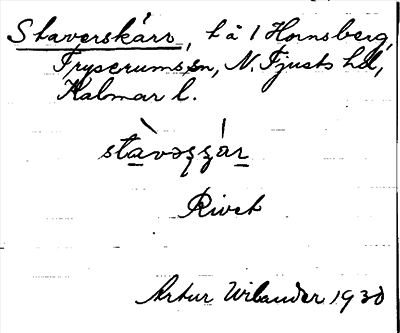 Staverskärr, t å 1 Hornsberg,
Tryserums sn, N. Tjusts hd,
Kalmar l.
stàvəʂʂár
Rivet
Artur Wilander 1930